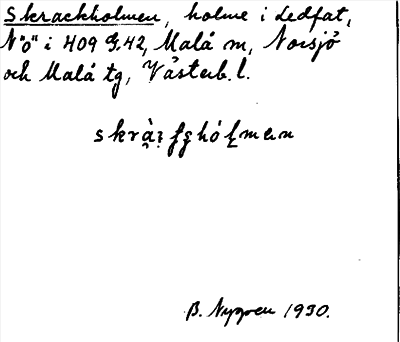 Skrackholmen, holme i Ledfat,
N"ö" i 409 G.42, Malå m, Norsjö
och Malå tg, Västerb. l.
B. Nygren 1930.